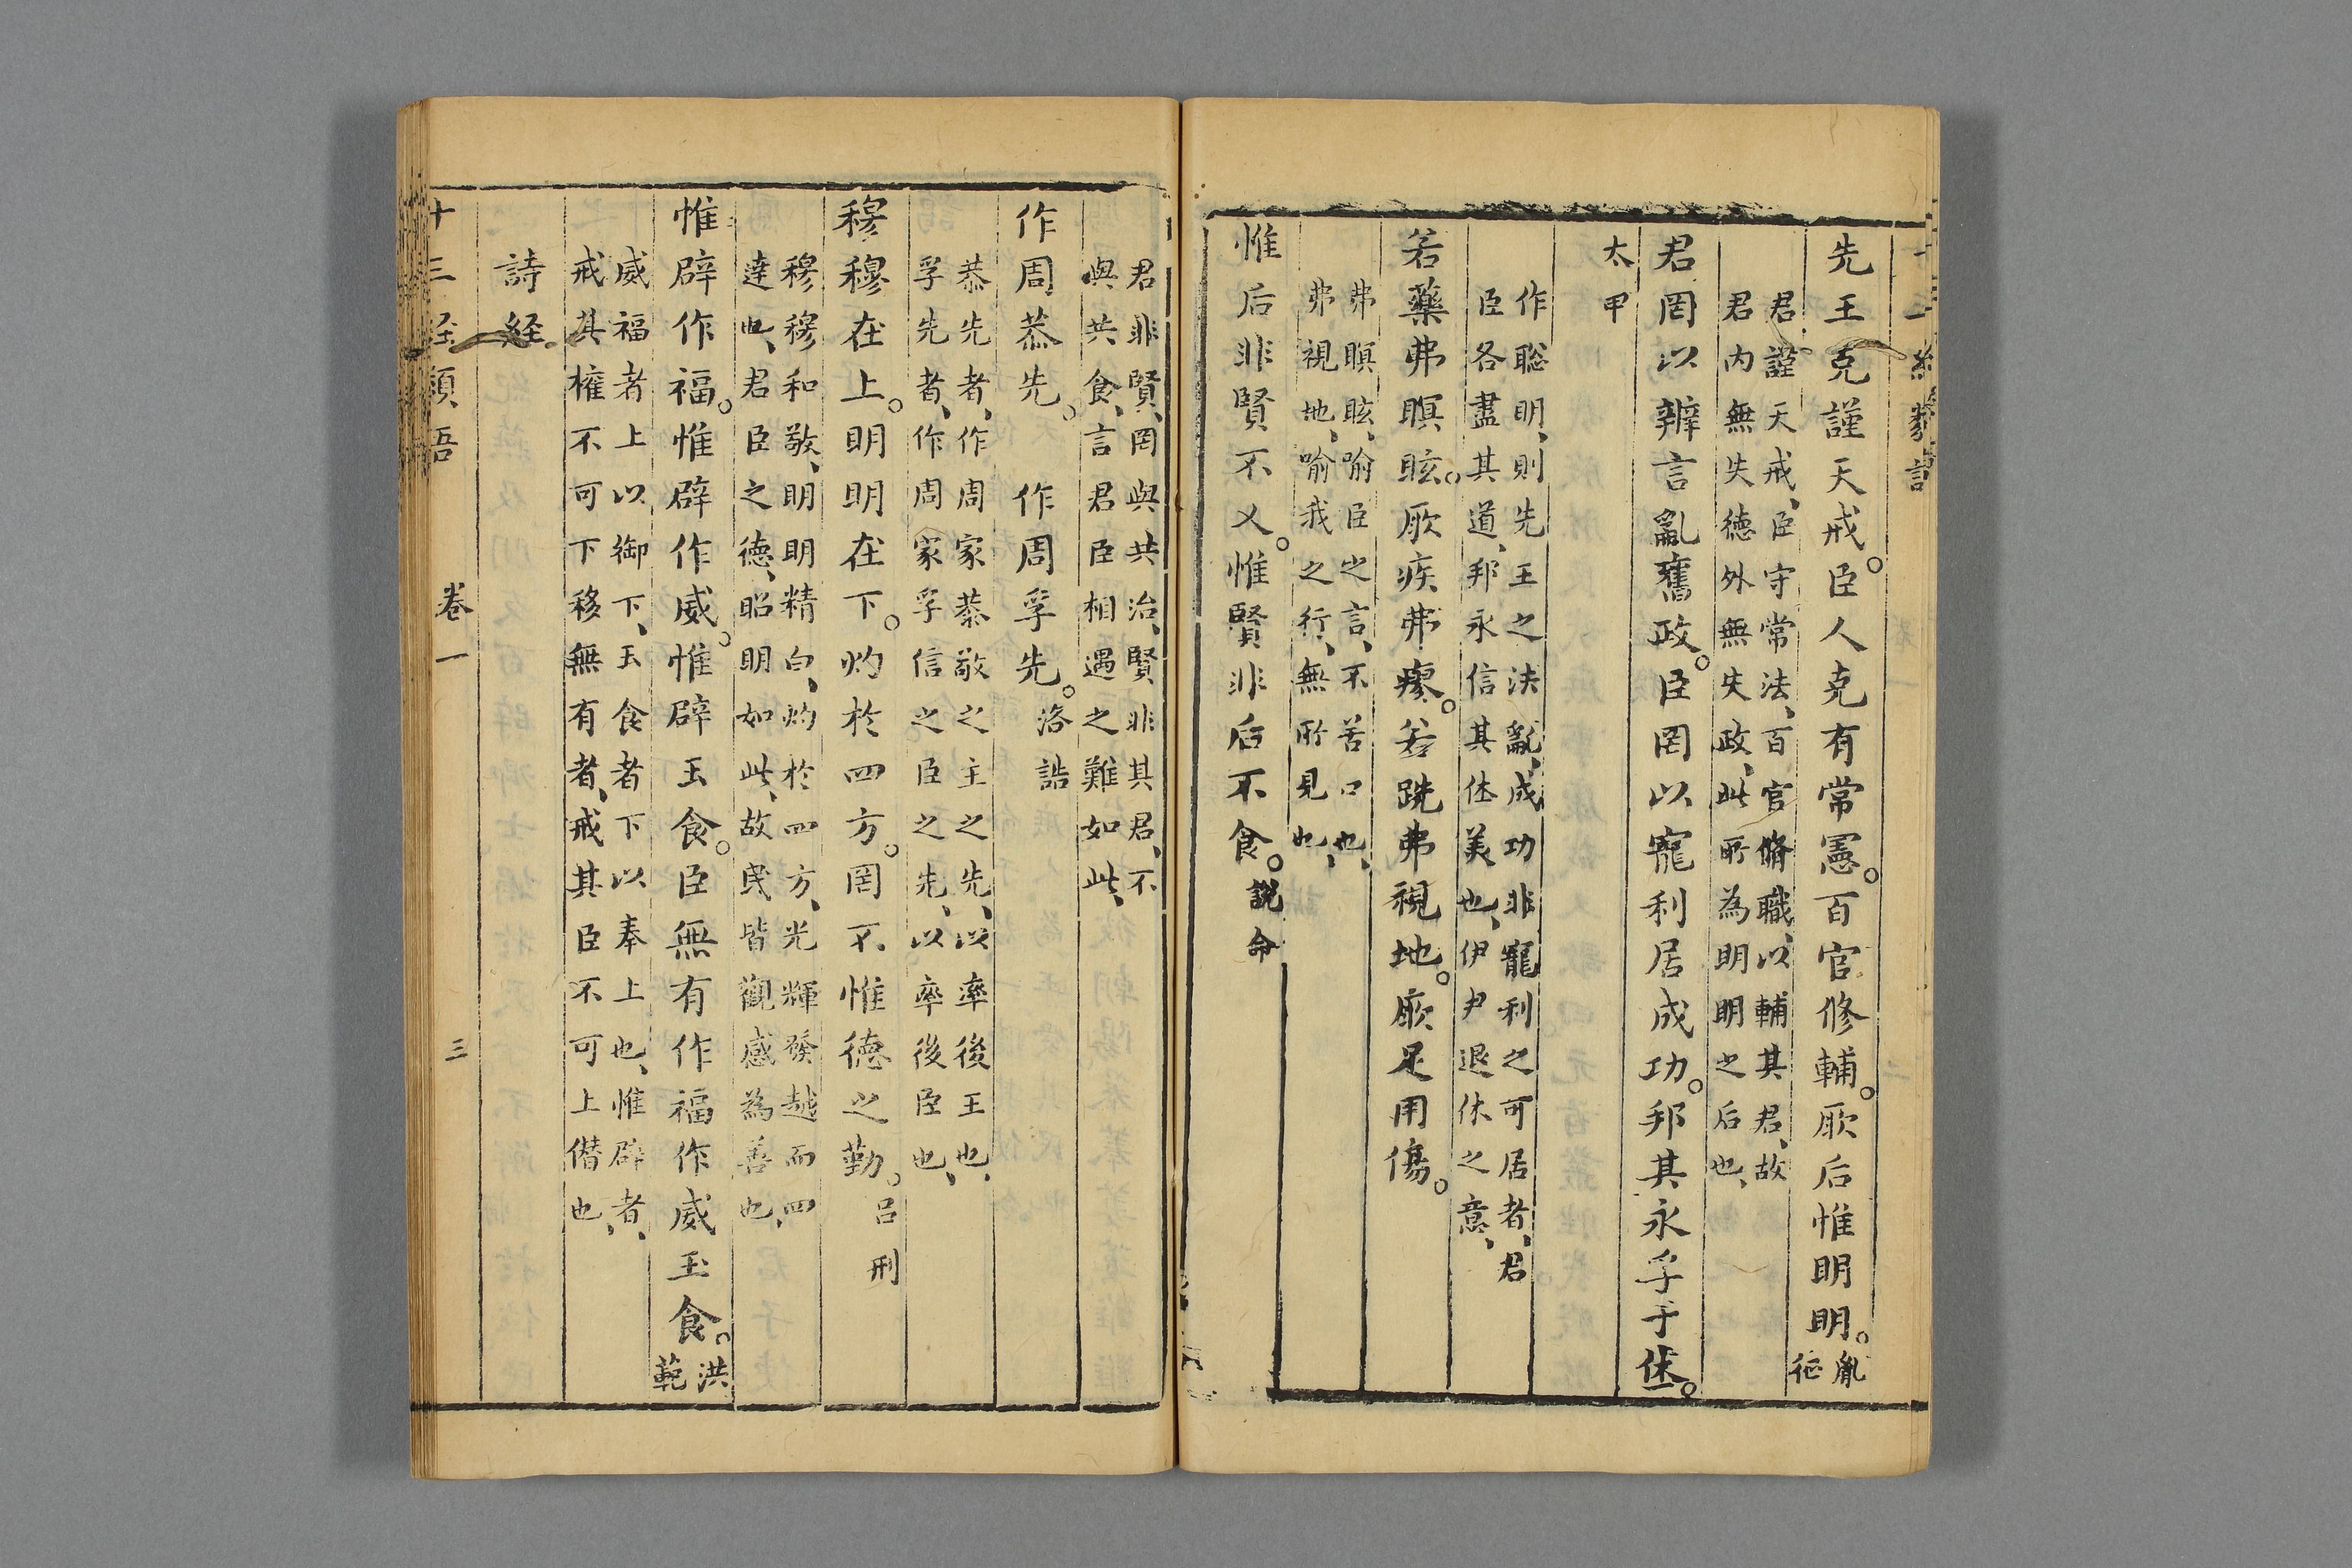 先王克謹天戒。臣人克有常憲。百官修輔。厥后惟明明。胤征
君謹天戒、臣守常法、百官脩職、以輔其君、故
君内無失德外無失政、此所為明明之后也、
君罔以辨言亂舊政。臣罔以寵利居成功。邦其永孚于休。
太甲
作聡明、則先王之法亂、成功非寵利之可居者、君
臣各盡其道、邦永信其休美也、伊尹退休之意、
若藥弗瞑眩。厥疾弗瘳。若跣弗視地。厥足用傷。
弗瞑眩、喻臣之言、不苦口也、
弗視地、喻我之行、無所見也、
惟后非賢不乂。惟賢非后不食。説命
君非賢、罔與共治、賢非其君、不
與共食、言君臣相遇之難如此、
作周恭先。作周孚先。洛誥
恭先者、作周家恭敬之主之先、以率後王也、
孚先者、作周家孚信之臣之先、以率後臣也、
穆穆在上。明明在下。灼於四方。罔不惟德之勤。呂刑
穆穆和敬、明明精白、灼於四方、光輝發越而四
達也、君臣之德、昭明如此、故民皆觀感為善也、
惟辟作福。惟辟作威。惟辟玉食。臣無有作福作威玉食。洪範
威福者上以御下、玉食者下以奉上也、惟辟者、
戒其權不可下移無有者、戒其臣不可上僭也、
詩経
十三経類語
卷一
三